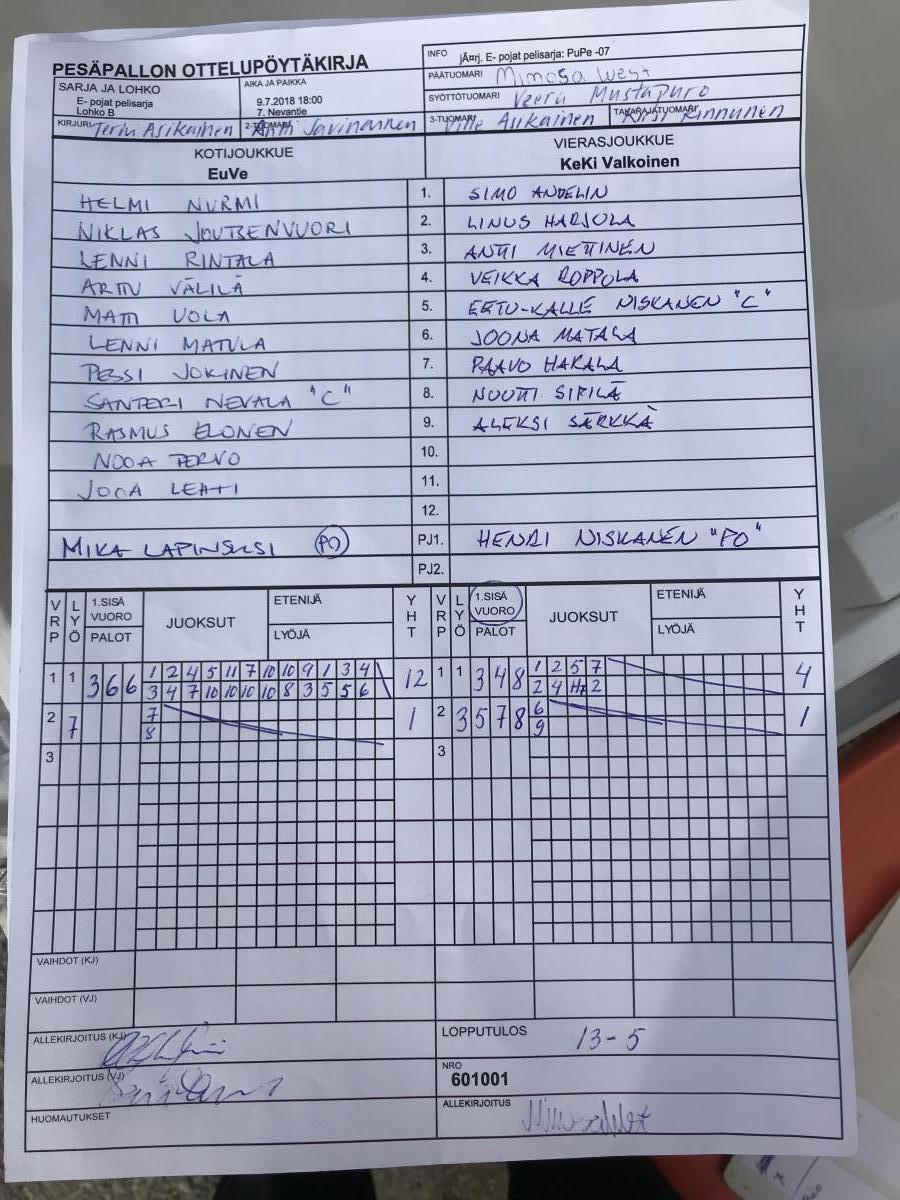 PESÄPALLON OTTELUPÖYTÄKIRJA
INFO jÄ¤rj. E- pojat pelisarja: PuPe -07
PÄÄTUOMARI Mimosa West
SYÖTTÖTUOMARI Veera Mustapuro
SARJA JA LOHKO
E- pojat pelisarja
Lohko B
AIKA JA PAIKKA
9.7.2018 18:00
7. Nevantie
KIRJURI Asikainen 2-TUOMARI 3-TUOMARI Ville Asikainen TAKARAJATUOMARI Kinnunen
KOTIJOUKKUE
EuVe
VIERASJOUKKUE
KeKi Valkoinen
HELMI NURMI 1. SIMO ANDELIN
NIKLAS JOUTSENVUORI 2. LINUS HARJULA
LENNI RINTALA 3. ANTTI MIETTINEN
ARTTU VÄLILÄ 4. VEIKKA ROPPOLA
MATTI UOLA 5. EETU-KALLE NISKANEN "C"
LENNI MATULA 6. JOONA MATALA
PESSI JOKINEN 7. PAAVO HAKALA
SANTERI NEVALA "C" 8. NUUTTI SIPILÄ
RASMUS ELONEN 9. ALEKSI SÄRKKÄ
NOOA TERVO 10.
JOOA LEHTI 11.
12.
MIKA PO PJ1. HENRI NISKANEN "PO"
PJ2.
VRP LYÖ 1.SISÄ VUORO PALOT JUOKSUT ETENIJÄ LYÖJÄ YHT VRP LYÖ 1.SISÄ VUORO PALOT JUOKSUT ETENIJÄ LYÖJÄ YHT
1 1 3 6 6 1 2 4 5 11 7 10 10 9 1 3 4 12 1 1 3 4 8 1 2 5 7 4
3 4 7 10 10 10 10 8 3 5 5 6 2 4 2
2 7 7 1 2 3 5 7 8 6 1
8 9
3 3
VAIHDOT (KJ)
VAIHDOT (VJ)
ALLEKIRJOITUS (KJ)
LOPPUTULOS 13-5
ALLEKIRJOITUS (VJ)
NRO
601001
HUOMAUTUKSET
ALLEKIRJOITUS